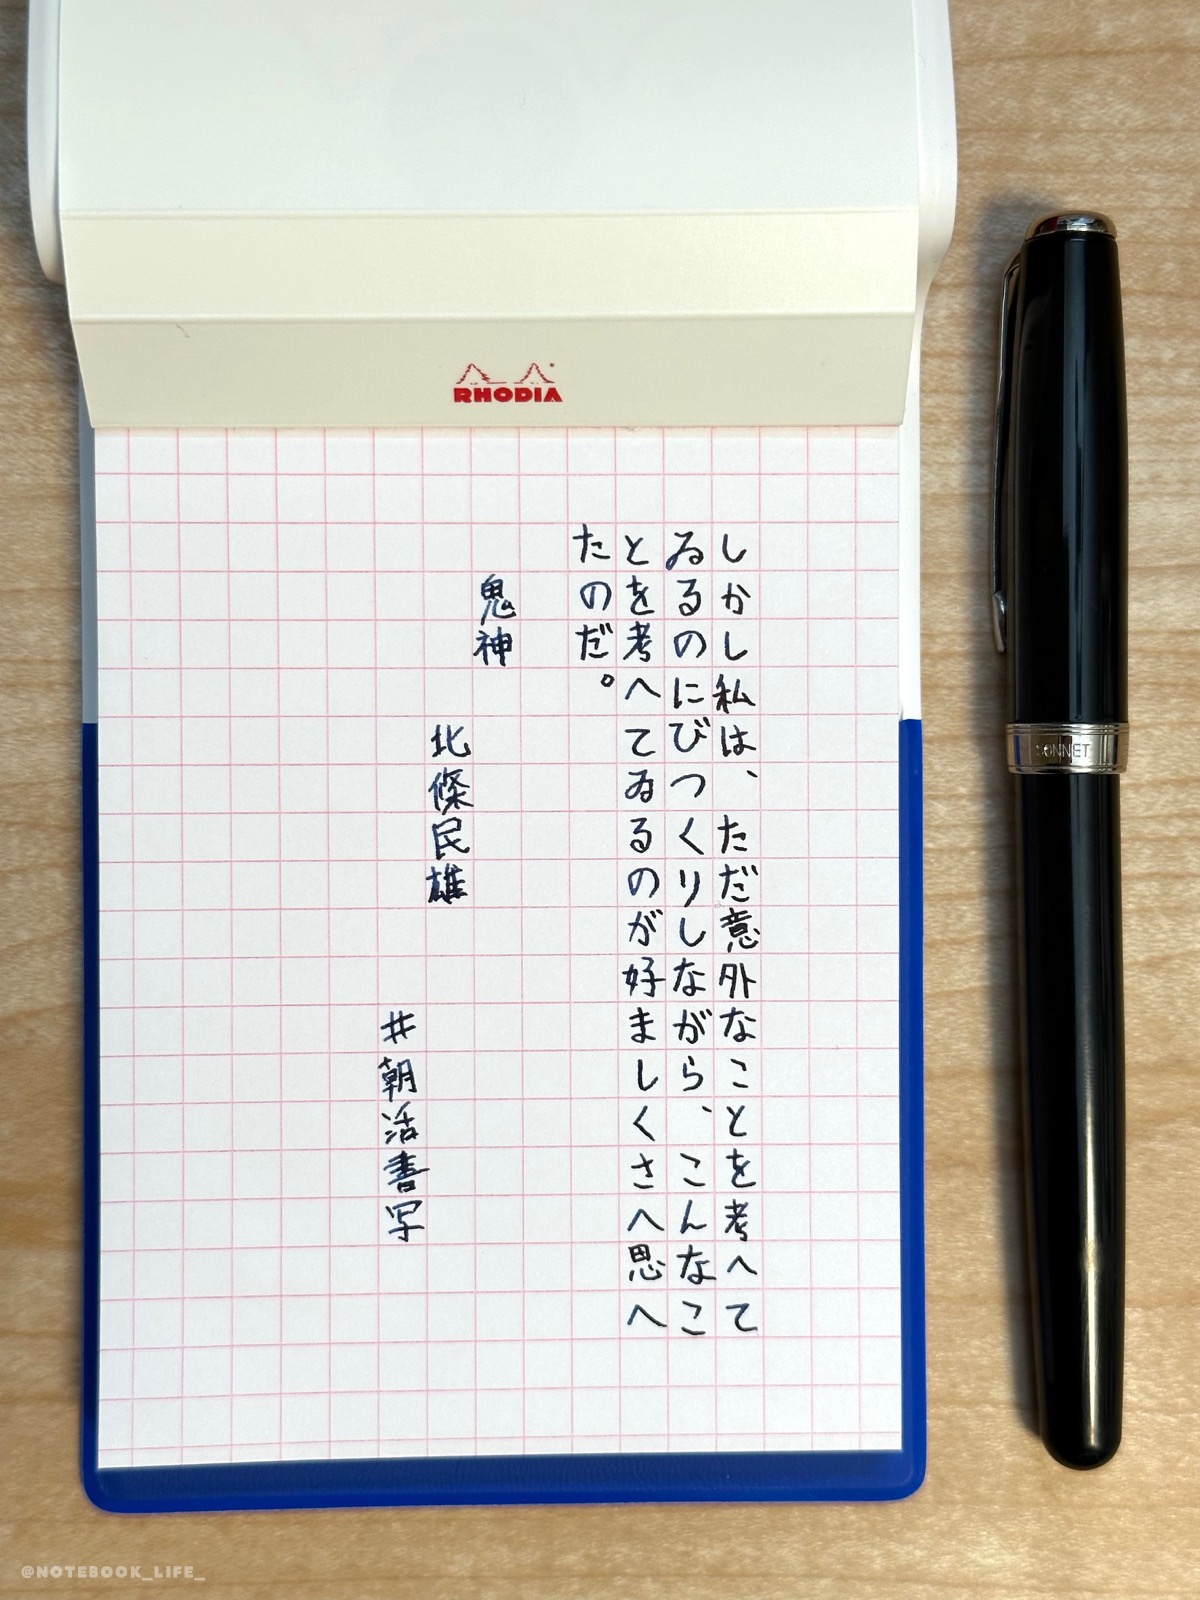 RHODIA
しかし私は、ただ意外なことを考へて
ゐるのにびつくりしながら、こんなこ
とを考へてゐるのが好ましくさへ思へ
たのだ。
鬼神
北條民雄
#朝活書写
SONNET
@NOTEBOOK_LIFE_